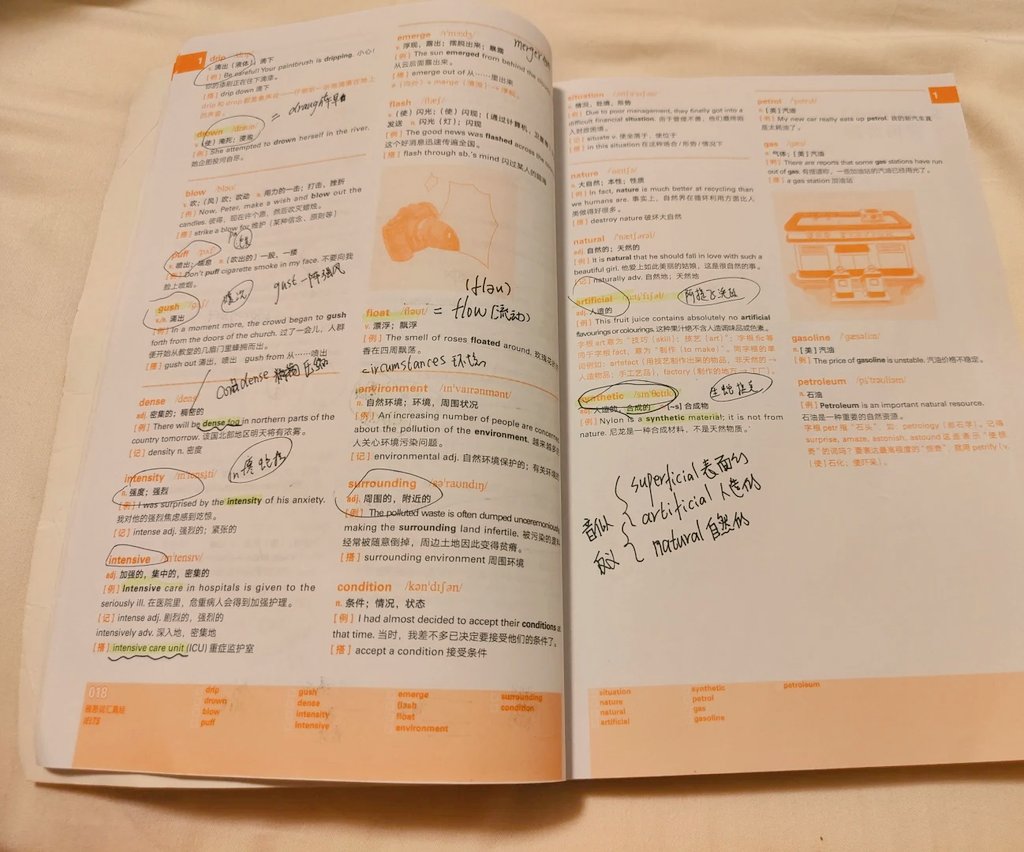 1
drip
v. 滴出（液体）；滴下
[例] Be careful! Your paintbrush is dripping. 小心！
你的漆刷正在往下滴漆。
[搭] drip down 滴下
drown /draʊn/
v.（使）淹死；浸泡
[例] She attempted to drown herself in the river.
她企图投河自尽。
blow /bləʊ/
v. 吹；（风）吹；吹动 n. 用力的一击；打击，挫折
[例] Now, Peter, make a wish and blow out the
candles. 彼得，现在许个愿，然后吹灭蜡烛。
[搭] strike a blow for 维护（某种信念、原则等）
puff /pʌf/
[例] Don't puff cigarette smoke in my face. 不要向我
脸上喷烟。
gust 一阵强风
gush /gʌʃ/
v./n. 涌出
[例] In a moment more, the crowd began to gush
forth from the doors of the church. 过了一会儿，人群
便开始从教堂的几扇门里蜂拥而出。
[搭] gush out 涌出，喷出 gush from 从……喷出
dense /dens/
adj. 密集的；稠密的
[例] There will be dense fog in northern parts of the
country tomorrow. 该国北部地区明天将有浓雾。
[记] density n. 密度
intensity /ɪnˈtensɪti/
n. 强度；强烈
[例] I was surprised by the intensity of his anxiety.
我对他的强烈焦虑感到吃惊。
[记] intense adj. 强烈的；紧张的
intensive /ɪnˈtensɪv/
adj. 加强的，集中的，密集的
[例] Intensive care in hospitals is given to the
seriously ill. 在医院里，危重病人会得到加强护理。
[记] intense adj. 剧烈的，强烈的
intensively adv. 深入地，密集地
[搭] intensive care unit (ICU) 重症监护室
emerge /ɪˈmɜːdʒ/
v. 浮现，露出；摆脱出来；暴露
[例] The sun emerged from behind the
从云后面露出来。
[搭] emerge out of 从……里出来
flash /flæʃ/
发送 n. 闪光（灯）；闪现
[例] The good news was flashed across the
这个好消息迅速传遍全国。
[搭] flash through sb.'s mind 闪过某人的脑海
(fləu)
float /fləʊt/ = flow (流动)
v. 漂浮；飘浮
[例] The smell of roses floated around,
香在四周飘荡。
circumstances 环境
environment /ɪnˈvaɪrənmənt/
n. 自然环境；环境，周围状况
[例] An increasing number of people are concerned
about the pollution of the environment.
人关心环境污染问题。
[记] environmental adj. 自然环境保护的；有关环境的
surrounding /səˈraʊndɪŋ/
adj. 周围的，附近的
[例] The polluted waste is often dumped unceremoniously,
making the surrounding land infertile. 被污染的废料
经常被随意倒掉，周边土地因此变得贫瘠。
[搭] surrounding environment 周围环境
condition /kənˈdɪʃən/
n. 条件；情况，状态
[例] I had almost decided to accept their conditions at
that time. 当时，我差不多已决定要接受他们的条件了。
[搭] accept a condition 接受条件
018
IELTS
drip
drown
blow
puff
gush
dense
intensity
intensive
emerge
flash
float
environment
surrounding
condition
1
situation
n. 情况，处境；形势
[例] Due to poor management, they finally got into a
difficult financial situation. 由于管理不善，他们最终陷
入财政困境。
[记] situate v. 使坐落于，使位于
[搭] in this situation 在这种场合/形势/情况下
nature
n. 大自然；本性；性质
[例] In fact, nature is much better at recycling than
we humans are. 事实上，自然界在循环利用方面比人
类做得好很多。
[搭] destroy nature 破坏大自然
natural /ˈnætʃərəl/
adj. 自然的；天然的
[例] It is natural that he should fall in love with such a
beautiful girl. 他爱上如此美丽的姑娘，这是很自然的事。
[记] naturally adv. 自然地；天然地
artificial
adj. 人造的
[例] This fruit juice contains absolutely no artificial
flavourings or colourings. 这种果汁绝不含人造调味品或色素。
synthetic /sɪnˈθetɪk/
adj. 人造的，合成的 n. [-s] 合成物
[例] Nylon is a synthetic material; it is not from
nature. 尼龙是一种合成材料，不是天然物质。
音似
superficial 表面的
artificial 人造的
反义
natural 自然的
petrol /ˈpetrəl/
n. 汽油
[例] My new car really eats up petrol. 我的新汽车真
是太耗油了。
gas /gæs/
n. 气体；[美] 汽油
[例] There are reports that some gas stations have run
out of gas. 有报道称，一些加油站的汽油已经用光了。
[搭] a gas station 加油站
gasoline /ˈgæsəliːn/
n. [美] 汽油
[例] The price of gasoline is unstable. 汽油价格不稳定。
petroleum /pɪˈtrəʊliəm/
n. 石油
[例] Petroleum is an important natural resource.
石油是一种重要的自然资源。
situation
nature
natural
artificial
synthetic
petrol
gas
gasoline
petroleum